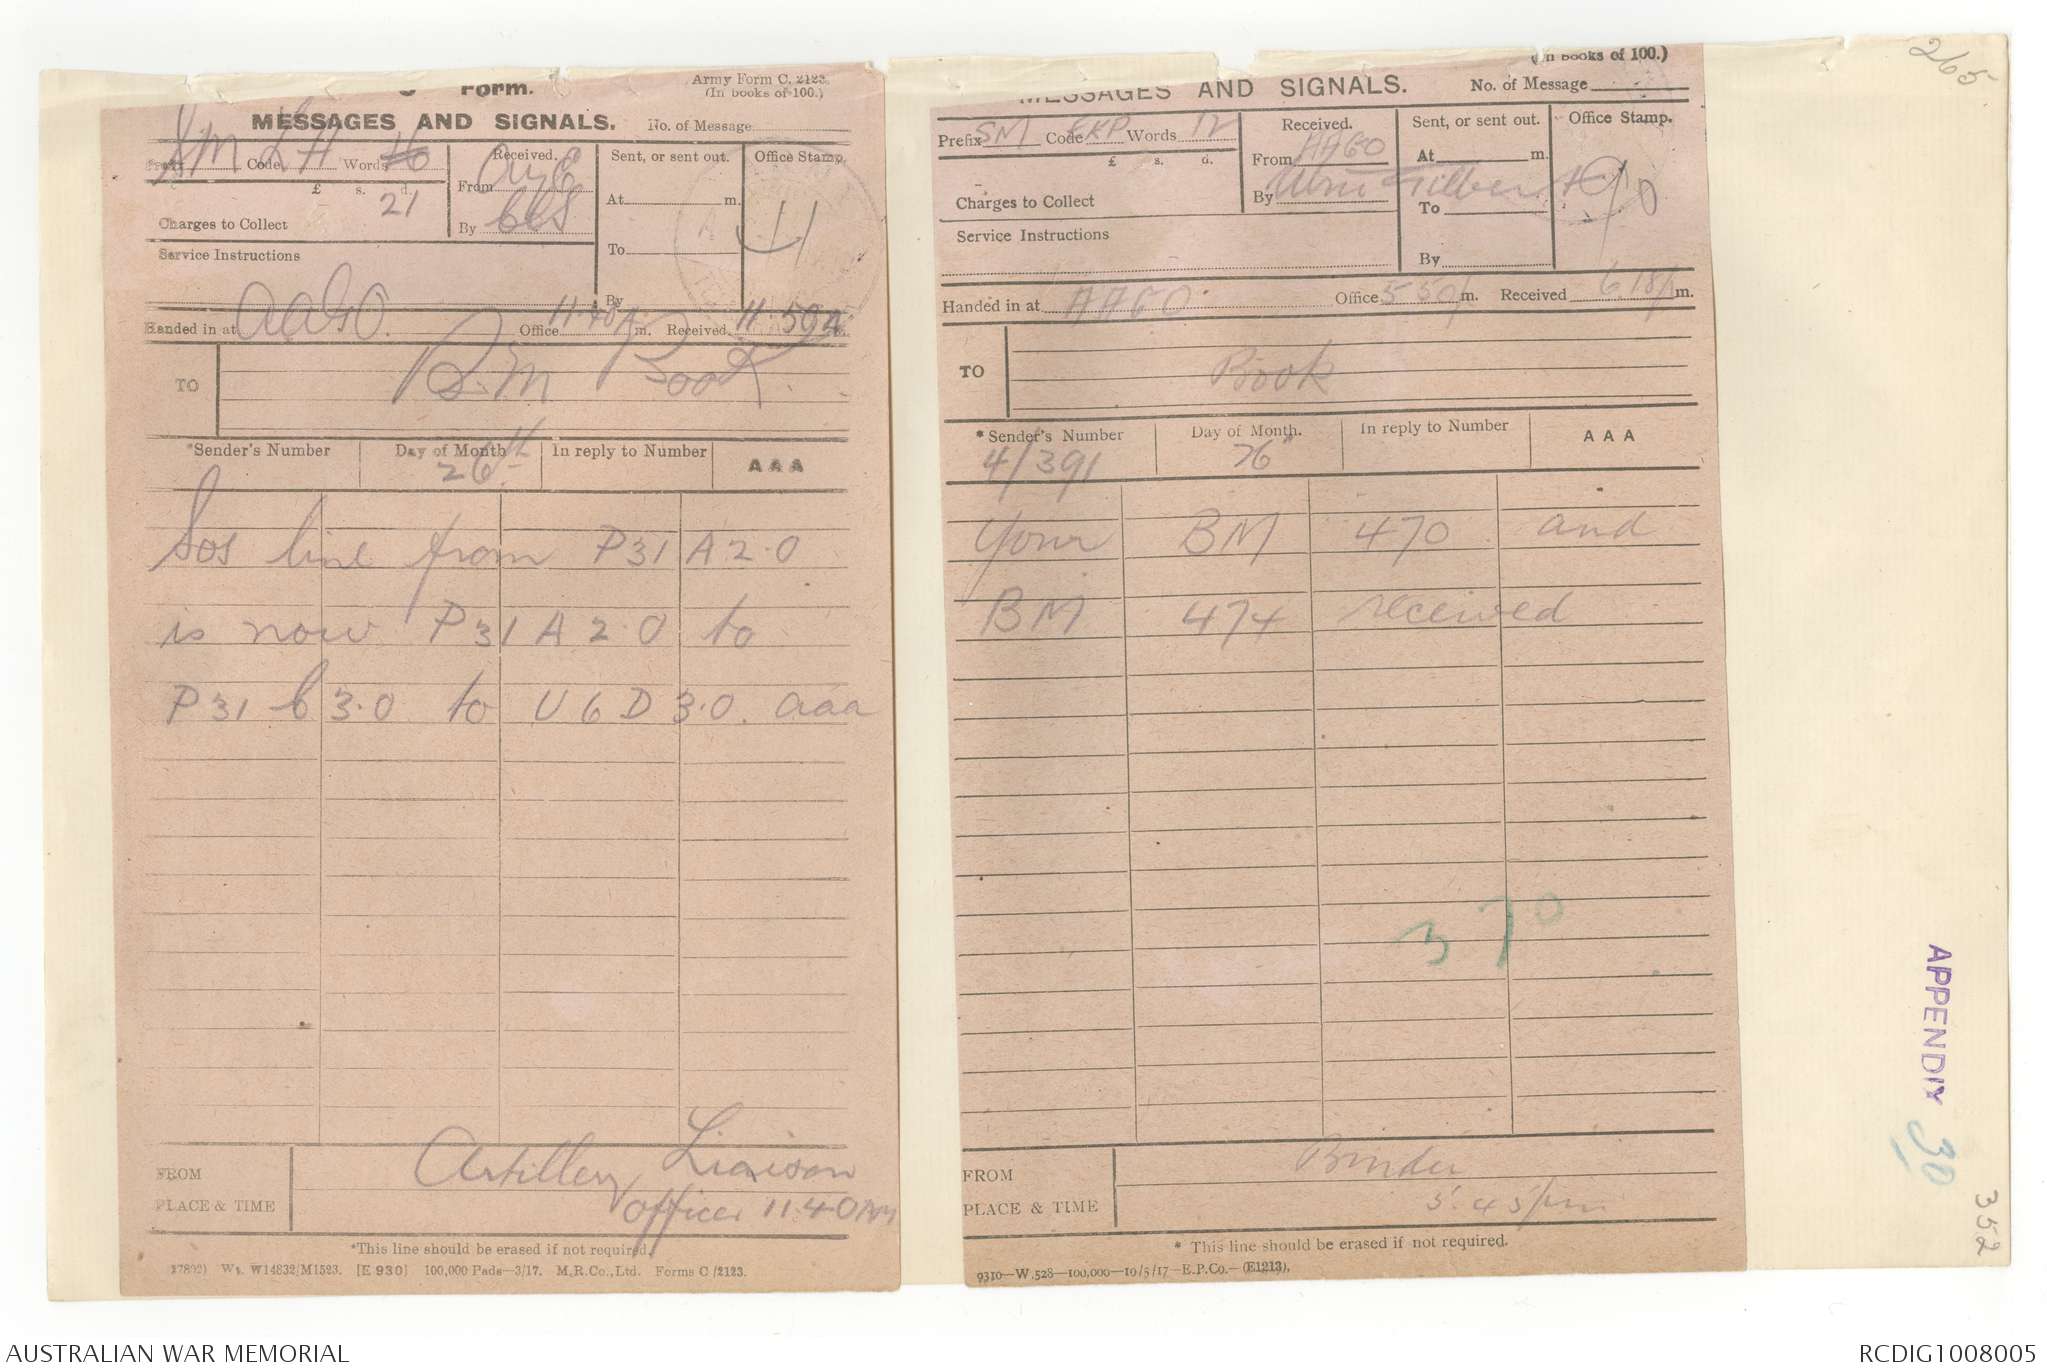 265
Form.
Army Form C. 2123.
(In books of 100.)
MESSAGES AND SIGNALS.
No. of Message
Prefix SM Code LH Words 16 21
£ s. d.
Charges to Collect
Service Instructions
Received.
From
By
Sent, or sent out.
At m.
To
By
Office Stamp.
Handed in at AAGO. Office 11.40 A m. Received 11.50 A m.
TO B.M Book
*Sender's Number
Day of Month 26th
In reply to Number
AAA
SOS line from P31 A 2.0
is now P31 A 2.0 to
P31 b 3.0 to U6 D 3.0. aaa
FROM
PLACE & TIME
Artillery Liaison
Officer 11.40 AM
*This line should be erased if not required.
27892) Wt. W14832/M1523. [E 930] 100,000 Pads—3/17. M.R.Co., Ltd. Forms C/2123.
(In books of 100.)
MESSAGES AND SIGNALS.
No. of Message
Prefix SM Code EKP Words 12
£ s. d.
Charges to Collect
Service Instructions
Received.
From AAGO
By
Sent, or sent out.
At m.
To
By
Office Stamp.
Handed in at AAGO Office 5 50 p m. Received 6.18 p m.
TO Book
* Sender's Number 4/391
Day of Month. 26
In reply to Number
AAA
Your BM 470 and
BM 474 received
370
FROM
PLACE & TIME
Binder
5.45 pm
* This line should be erased if not required.
9310—W.528—100,000—10/5/17—E.P.Co.—(E1213).
APPENDIX 30
352
AUSTRALIAN WAR MEMORIAL
RCDIG1008005